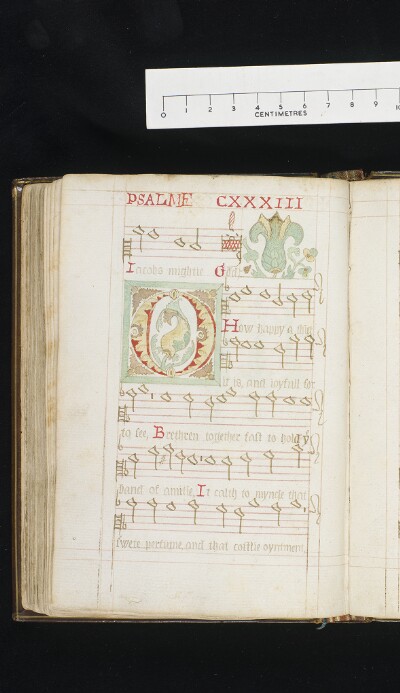 0 1 2 3 4 5 6 7 8 9 10
CENTIMETRES
PSALME CXXXIII
Iacobs mightie God.
O
How happy a thing
it is, and ioyfull for
to see, Brethren together fast to hold yͤ
band of amitie, It calth to mynde that
sweet perfume, and that costlie oyntment